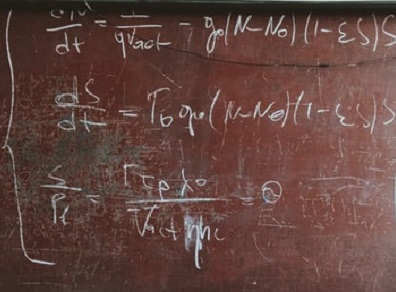 dN/dt = I/qVact - g₀(N-N₀)(1-εS)S
dS/dt = Γg₀(N-N₀)(1-εS)S
S/Pf = Γτpλ₀/Vactηhc = ②